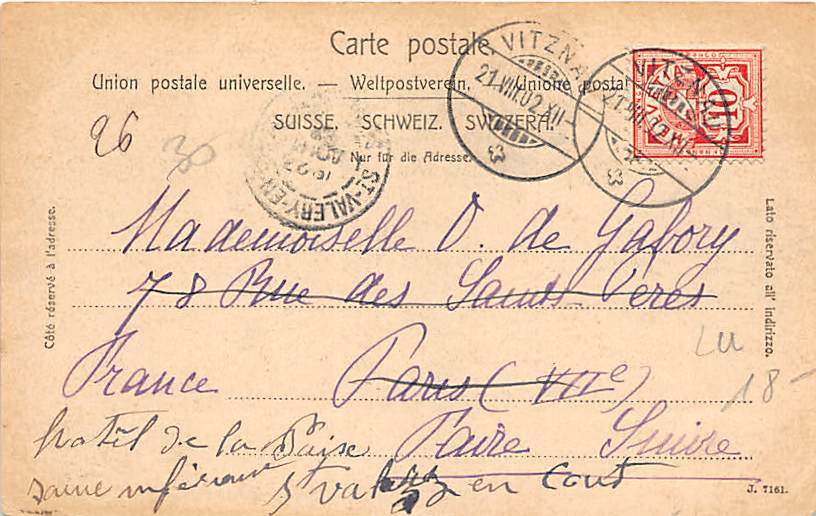 Carte postale.
Union postale universelle. — Weltpostverein. — Unione postale
SUISSE. SCHWEIZ. SVIZZERA.
Nur für die Adresse.
VITZNAU
21.VIII.02.XII
VITZNAU
21.VIII.02.XII
10
ST-VALERY-EN-
26
30
Côté réservé à l'adresse.
Lato riservato all' indirizzo.
Mademoiselle O. de Gabory
78 Rue des Saints Pères
France Paris (VIIe)
Faire Suivre
hotêl de la Paix
St valery en Caux
LU
18-
J. 7161.